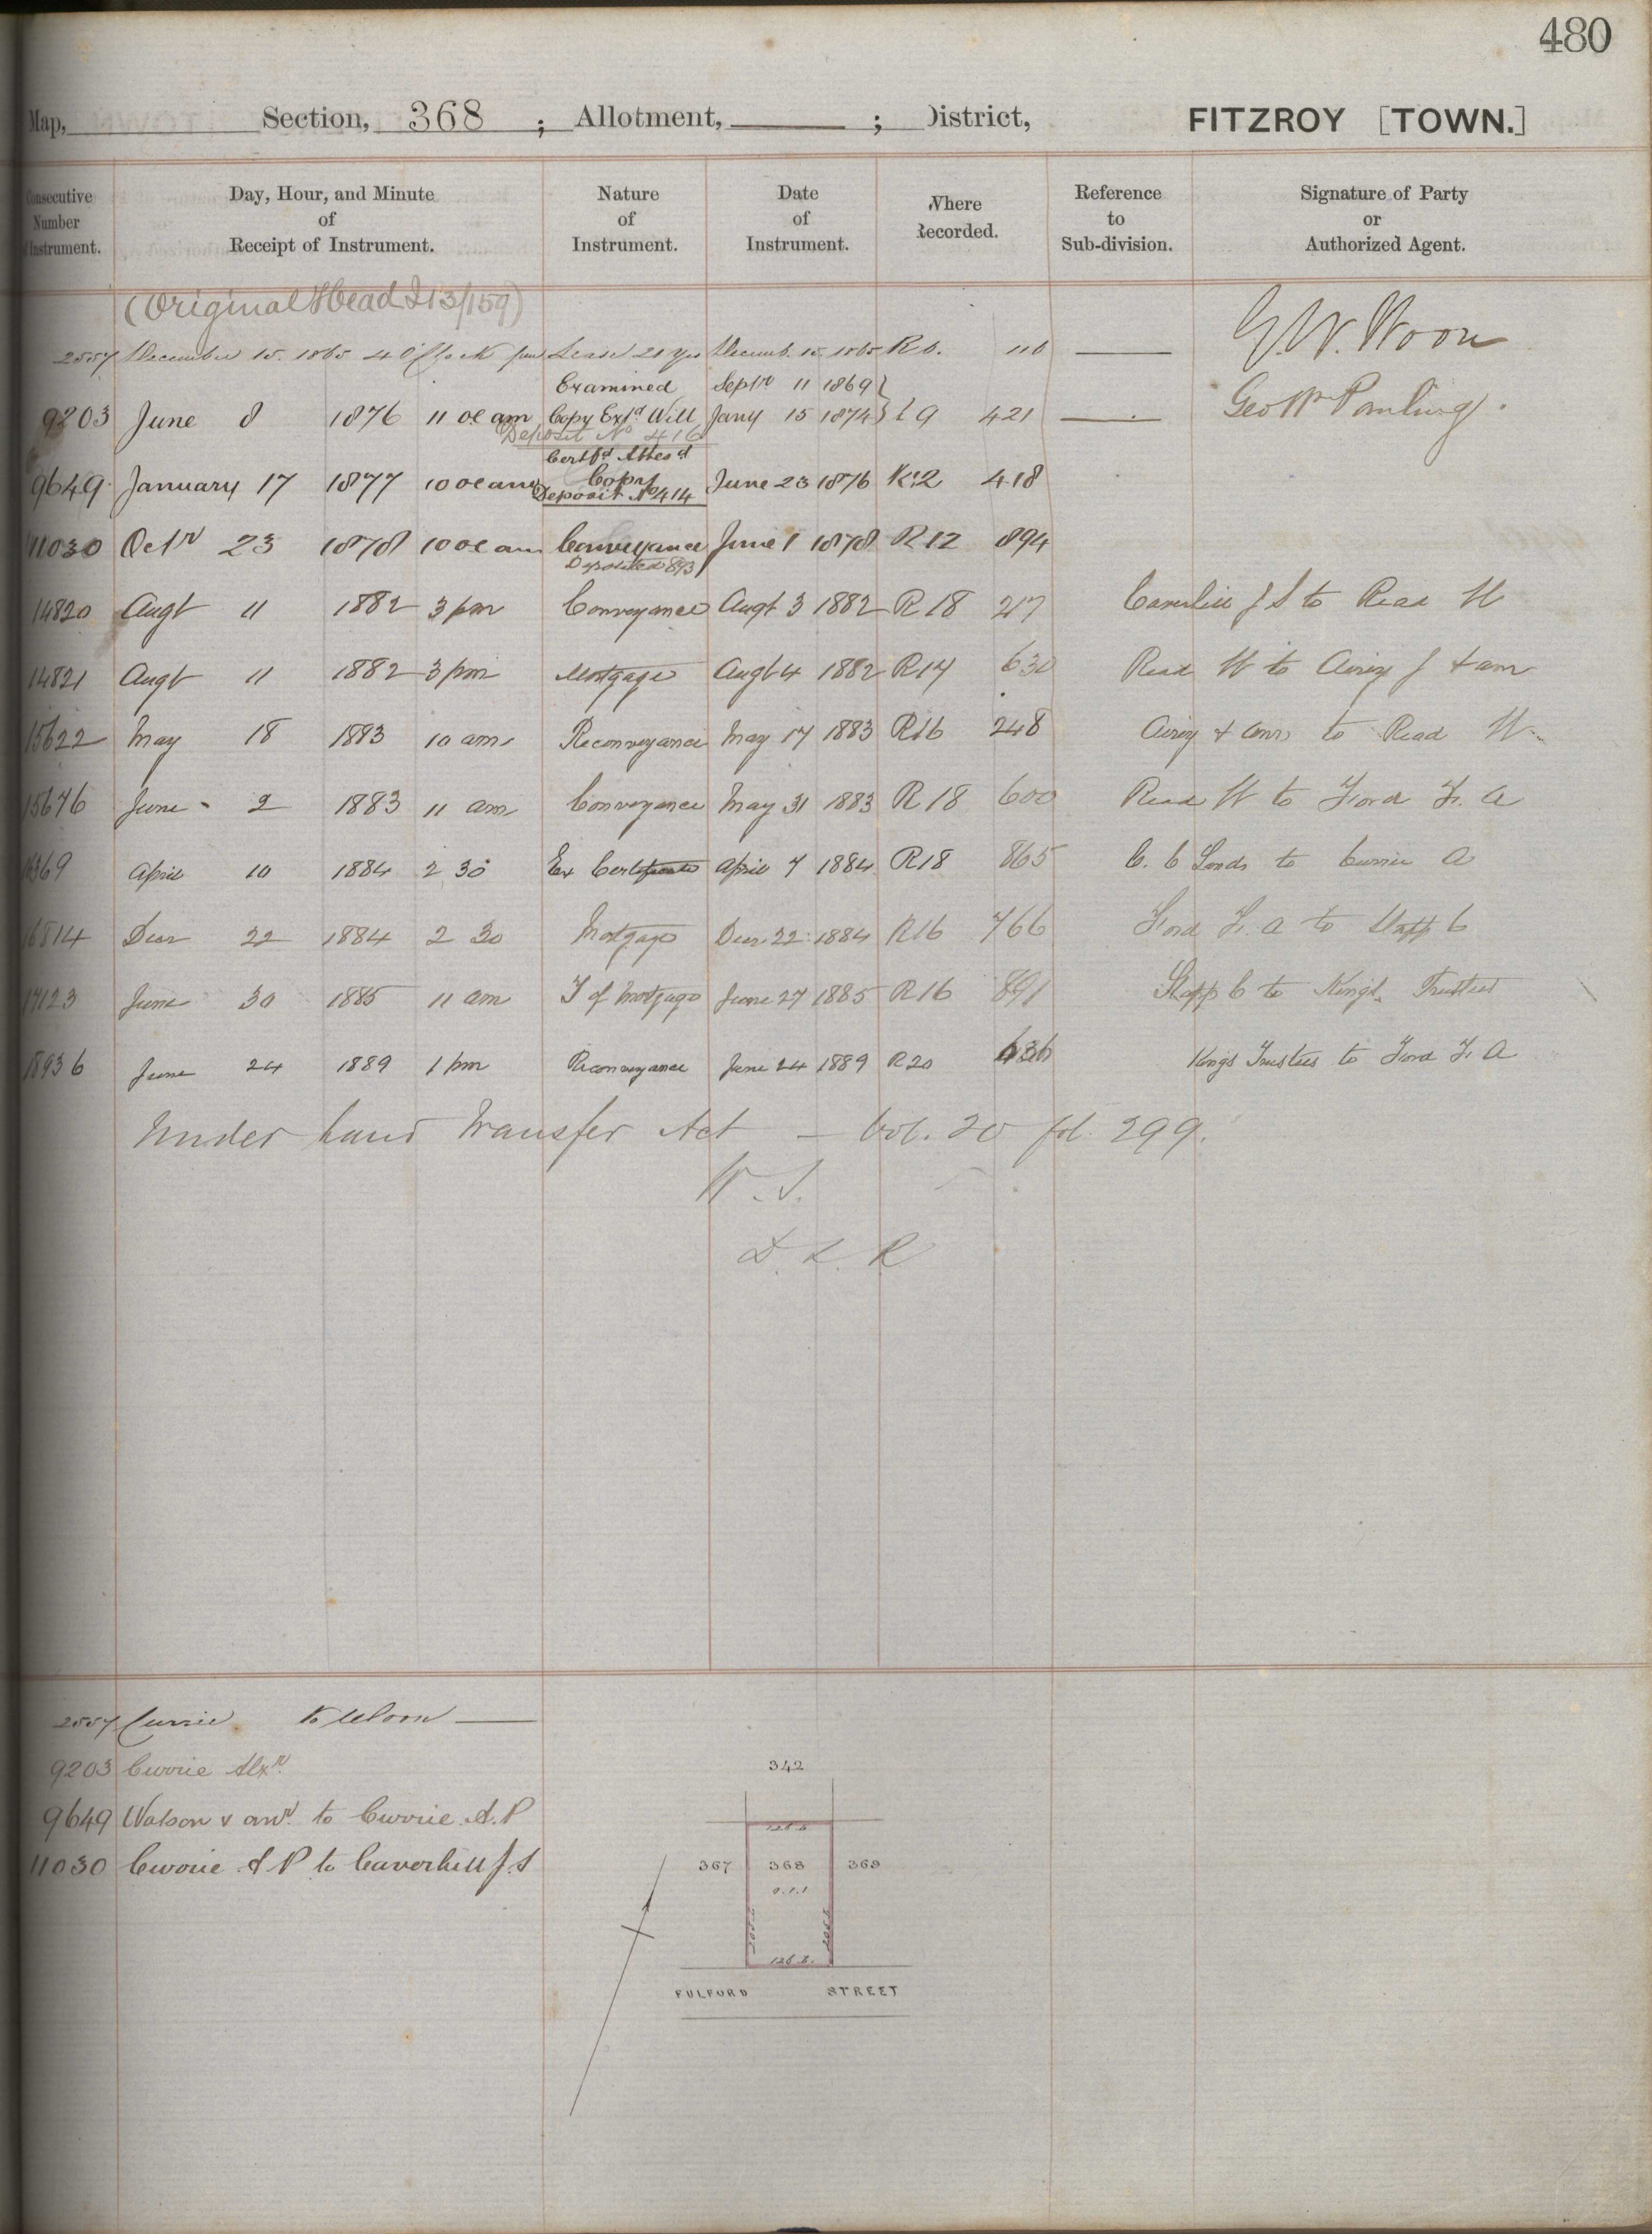 480
Map, Section, 368 ; Allotment, ; District, FITZROY [TOWN.]
Consecutive Number of Instrument. Day, Hour, and Minute of Receipt of Instrument. Nature of Instrument. Date of Instrument. Where Recorded. Reference to Sub-division. Signature of Party or Authorized Agent.
(Original Head D13/159)
2557 December 15. 1865 4 O'Clock pm Lease 21 Yrs Decemb. 15. 1865 R6. 116 G. W. Woon
Examined Septr 11 1869}
9203 June 8 1876 11 Oc am Copy Extd Will Jany 15 1874} L9 421 Geo Wm Panling.
Deposit No 416
Certfd Attesd
9649 January 17 1877 10 Oc am Copy June 23 1876 K.2 418
Deposit No 414
11030 Octr 23 1878 10 Oc am Conveyance June 1 1878 R12 894
Deposited 893
14820 Augt 11 1882 3 pm Conveyance Augt 3 1882 R18 217 Caverhill J S to Read W
14821 Augt 11 1882 3 pm Mortgage Augt 4 1882 R14 630 Read W to Airey J & anr
15622 May 18 1883 10 am Reconveyance May 17 1883 R16 248 Airey & anr to Read W
15676 June 2 1883 11 am Conveyance May 31 1883 R18 600 Read W to Ford F. A
16369 April 10 1884 2 30 Ex Certificate April 7 1884 R18 865 C. C Lands to Currie A
16814 Decr 22 1884 2 30 Mortgage Decr 22 1884 R16 766 Ford F. A to Stapp C
17123 June 30 1885 11 am T of Mortgage June 27 1885 R16 891 Stapp C to King's Trustees
18936 June 24 1889 1 pm Reconveyance June 24 1889 R20 636 Kings Trustees to Ford F. A
Under Land Transfer Act — Vol. 20 fol. 299.
W. S.
D. L. R
2557 Currie to Woon
9203 Currie Alxr.
9649 Watson & anr. to Currie A. P
11030 Currie A P to Caverhill J. S
342
126.2
367 368 369
0.1.1
126.2.
FULFORD STREET